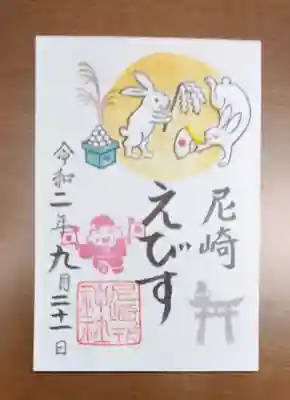 尼崎
えびす
令和二年九月二十一日